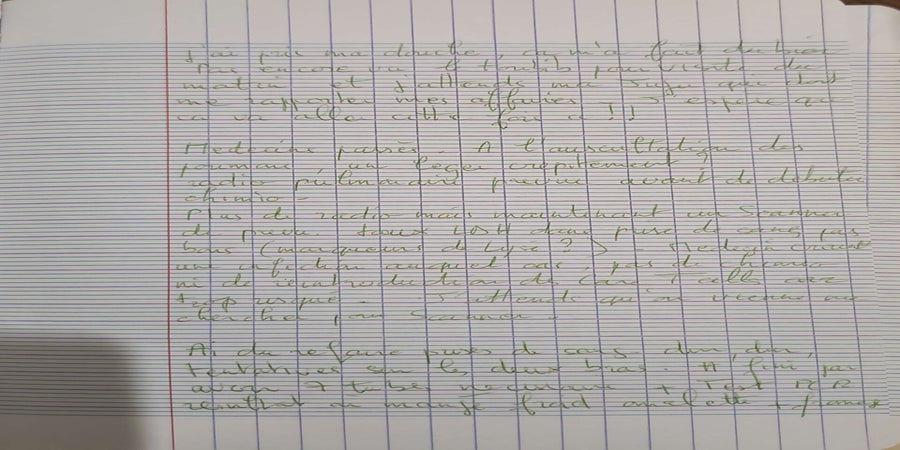 J'ai pris ma douche, ça m'a fait du bien
Pas encore vu le toubib pour visite du
matin et j'attends ma sœur qui doit
me rapporter mes affaires. J'espère que
ça va aller cette fois ci !!
Médecins passés. A l'auscultation des
poumons un léger crépitement ?
radio pulmonaire prévue avant de débuter
chimio -
Plus de radio mais maintenant un Scanner
de prévu. taux LDH dans prise de sang pas
bons (marqueurs de Lyse ?) -
une infection auquel cas, pas de chimio
ni de réintroduction des Car T cells car
trop risqué - J'attends qu'on vienne me
chercher pour Scanner -
Ai du refaire prises de sang dur, dur,
tentatives sur les deux bras. A fini par
avoir 7 tubes + Test
mangé froid omelette +